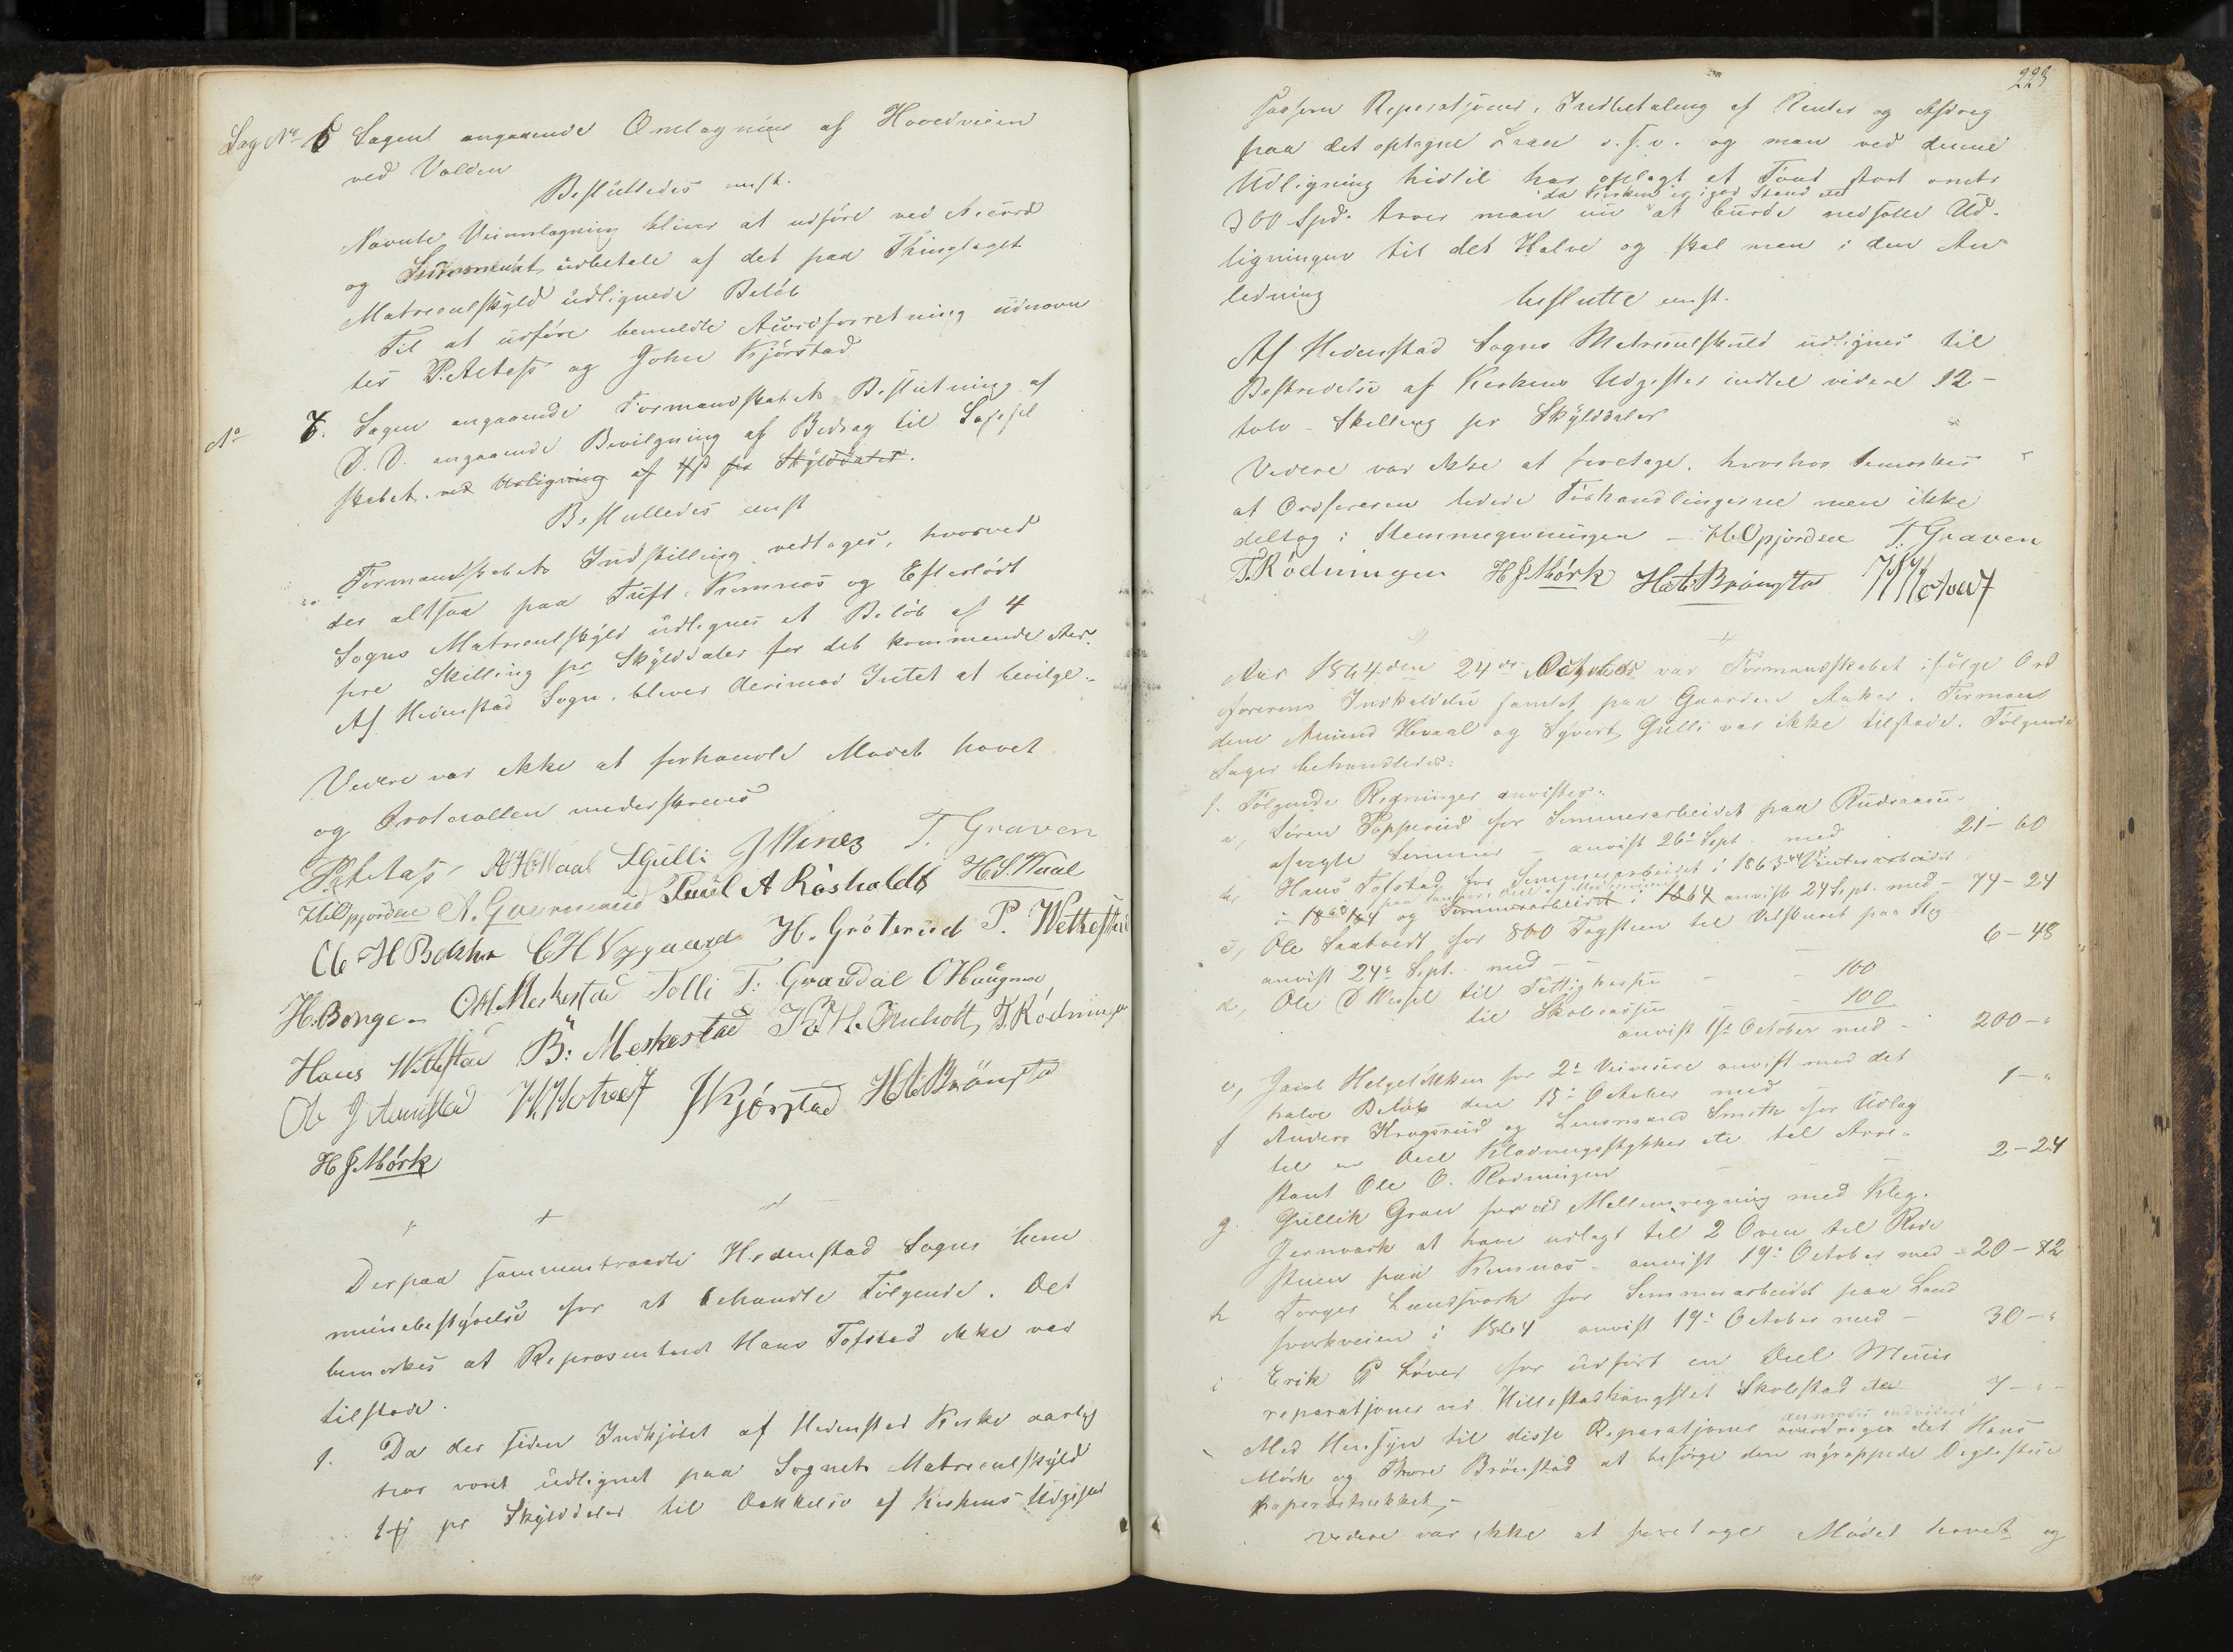 Sag No 6 Sagen angaaende Omlægning af Hovedveien
ved Volden
Besluttedes enst.
Nævnte Veiomlægning bliver at udføre ved Accord
og udbetale af det paa Thinglaget
Matrikulskyld udlignede Beløb
Til at udføre bemeldte Accordforretning udnævn
tes P. Aetass og John Kjørstad
No 7. Sagen angaaende Formandskabets Beslutning af
D. D. angaaende Bevilgning af Bidrag til
skabet ved Udligning af pr Skylddaler.
Besluttedes enst
Formandskabets Indstilling vedtoges, hvorved
der altsaa paa Tuft, Komnes og Eftelødt
Sogns Matriculskyld udlignes et Beløb af 4
fire Skilling pr Skylddaler for det kommende Aar.
Af Hedenstad Sogn bliver derimod Intet at bevilge.
Videre var ikke at forhandle Mødet hævet
og Protocollen underskreves
T Gulli T. Graven
H Opjordene Paul A Råsholdt H.S. Kaal
C H Nygaard H. Gróterud P.
H. Bonge O H Meskestad Tolli T. Grandal O Haugme
Hans B: Meskestad T. Rödningen
Ole J J Kjørstad H A Brånsta
H J Mörk
Derpaa sammentraadte Hedenstad Sogns Kom
munebestyrelse for at behandle Følgende. Det
bemærkes at Repræsentant Hans Tofstad ikke var
tilstede.
1. Da der siden Indkjøbet af Hedenstad Kirke aarlig
har været udlignet paa Sognets Matriculskyld
pr Skylddaler til Dækkelse af Kirkens Udgifter
223
saasom Reparationer, Indbetaling af Renter og Afdrag
paa det optagne Laan o.s.v. og man ved denne
Udligning hidtil har oplagt et Fond stort omtr
da Kirken er i god Stand
300 Spd. troer man nu at burde nedsætte Ud-
ligningen til det Halve og skal man i den An
ledning beslutte enst.
Af Hedenstad Sogns Matriculskuld udlignes til
Bestridelse af Kirkens Udgifter indtil videre 12-
tolv - Skilling pr Skylddaler
Videre var ikke at foretage, hvorhos bemærkes
at Ordføreren ledede Forhandlingerne men ikke
deltog i Stemmegivningen - H Opjordene T. Graven
T. Rödningen H J Mörk H A Brånsta
Aar 1864 den 24de October var Formandskabet ifølge Ord
førerens Indkaldelse samlet paa Gaarden Aaker. Formæn
dene Amund Hvaal og Syvert Gulli var ikke tilstede. Følgende
Sager behandledes:
1. Følgende Regninger anvistes:
a, Søren Popperud for Sommerarbeidet paa
afvigte Sommer - anvist 26de Sept. med 21-60
b, Hans Tofstad for Sommerarbeidet i 1863 Vinterarbeidet
i 1863/64 og Sommerarbeidet i 1864 anvist 24 Sept. med - 74-24
c, Ole Saatvedt for 800 Tagsteen til paa
anvist 24de Sept. med - 6-48
d, Ole D Wessel til Fattigkassen - 100
til Skolecassen - 100
anvist 1ste October med - 200-"
e, Jacob Helgelikken for 2de anvist med det
halve Beløb den 15de October med 1-"
f Anders Kragsrud og Lensmand Smith for Udlæg
til en Deel Klædningsstykker etc til Arre-
stant Ole O. Rødningen - 2-24
g. Gullik Gran for ved Mellemregning med Kbg.
Jernværk at have udlagt til 2 Ovne til Rode
stuen paa Komnes - anvist 19de October med - 20-72
h Torger Landsverk for Sommerarbeidet paa Land
sverkveien i 1864 anvist 19de October med - 30-"
i Erik P Løver for udført en Deel Muur
reparationer ved Skolestad 7-"
Med Hensyn til disse Reparationer overdrages det Hans
Mørk og Thore Brånstad at besørge den nyoppede Daglestue
papirbetrækket,-
Videre var ikke at foretage Mødet hævet og